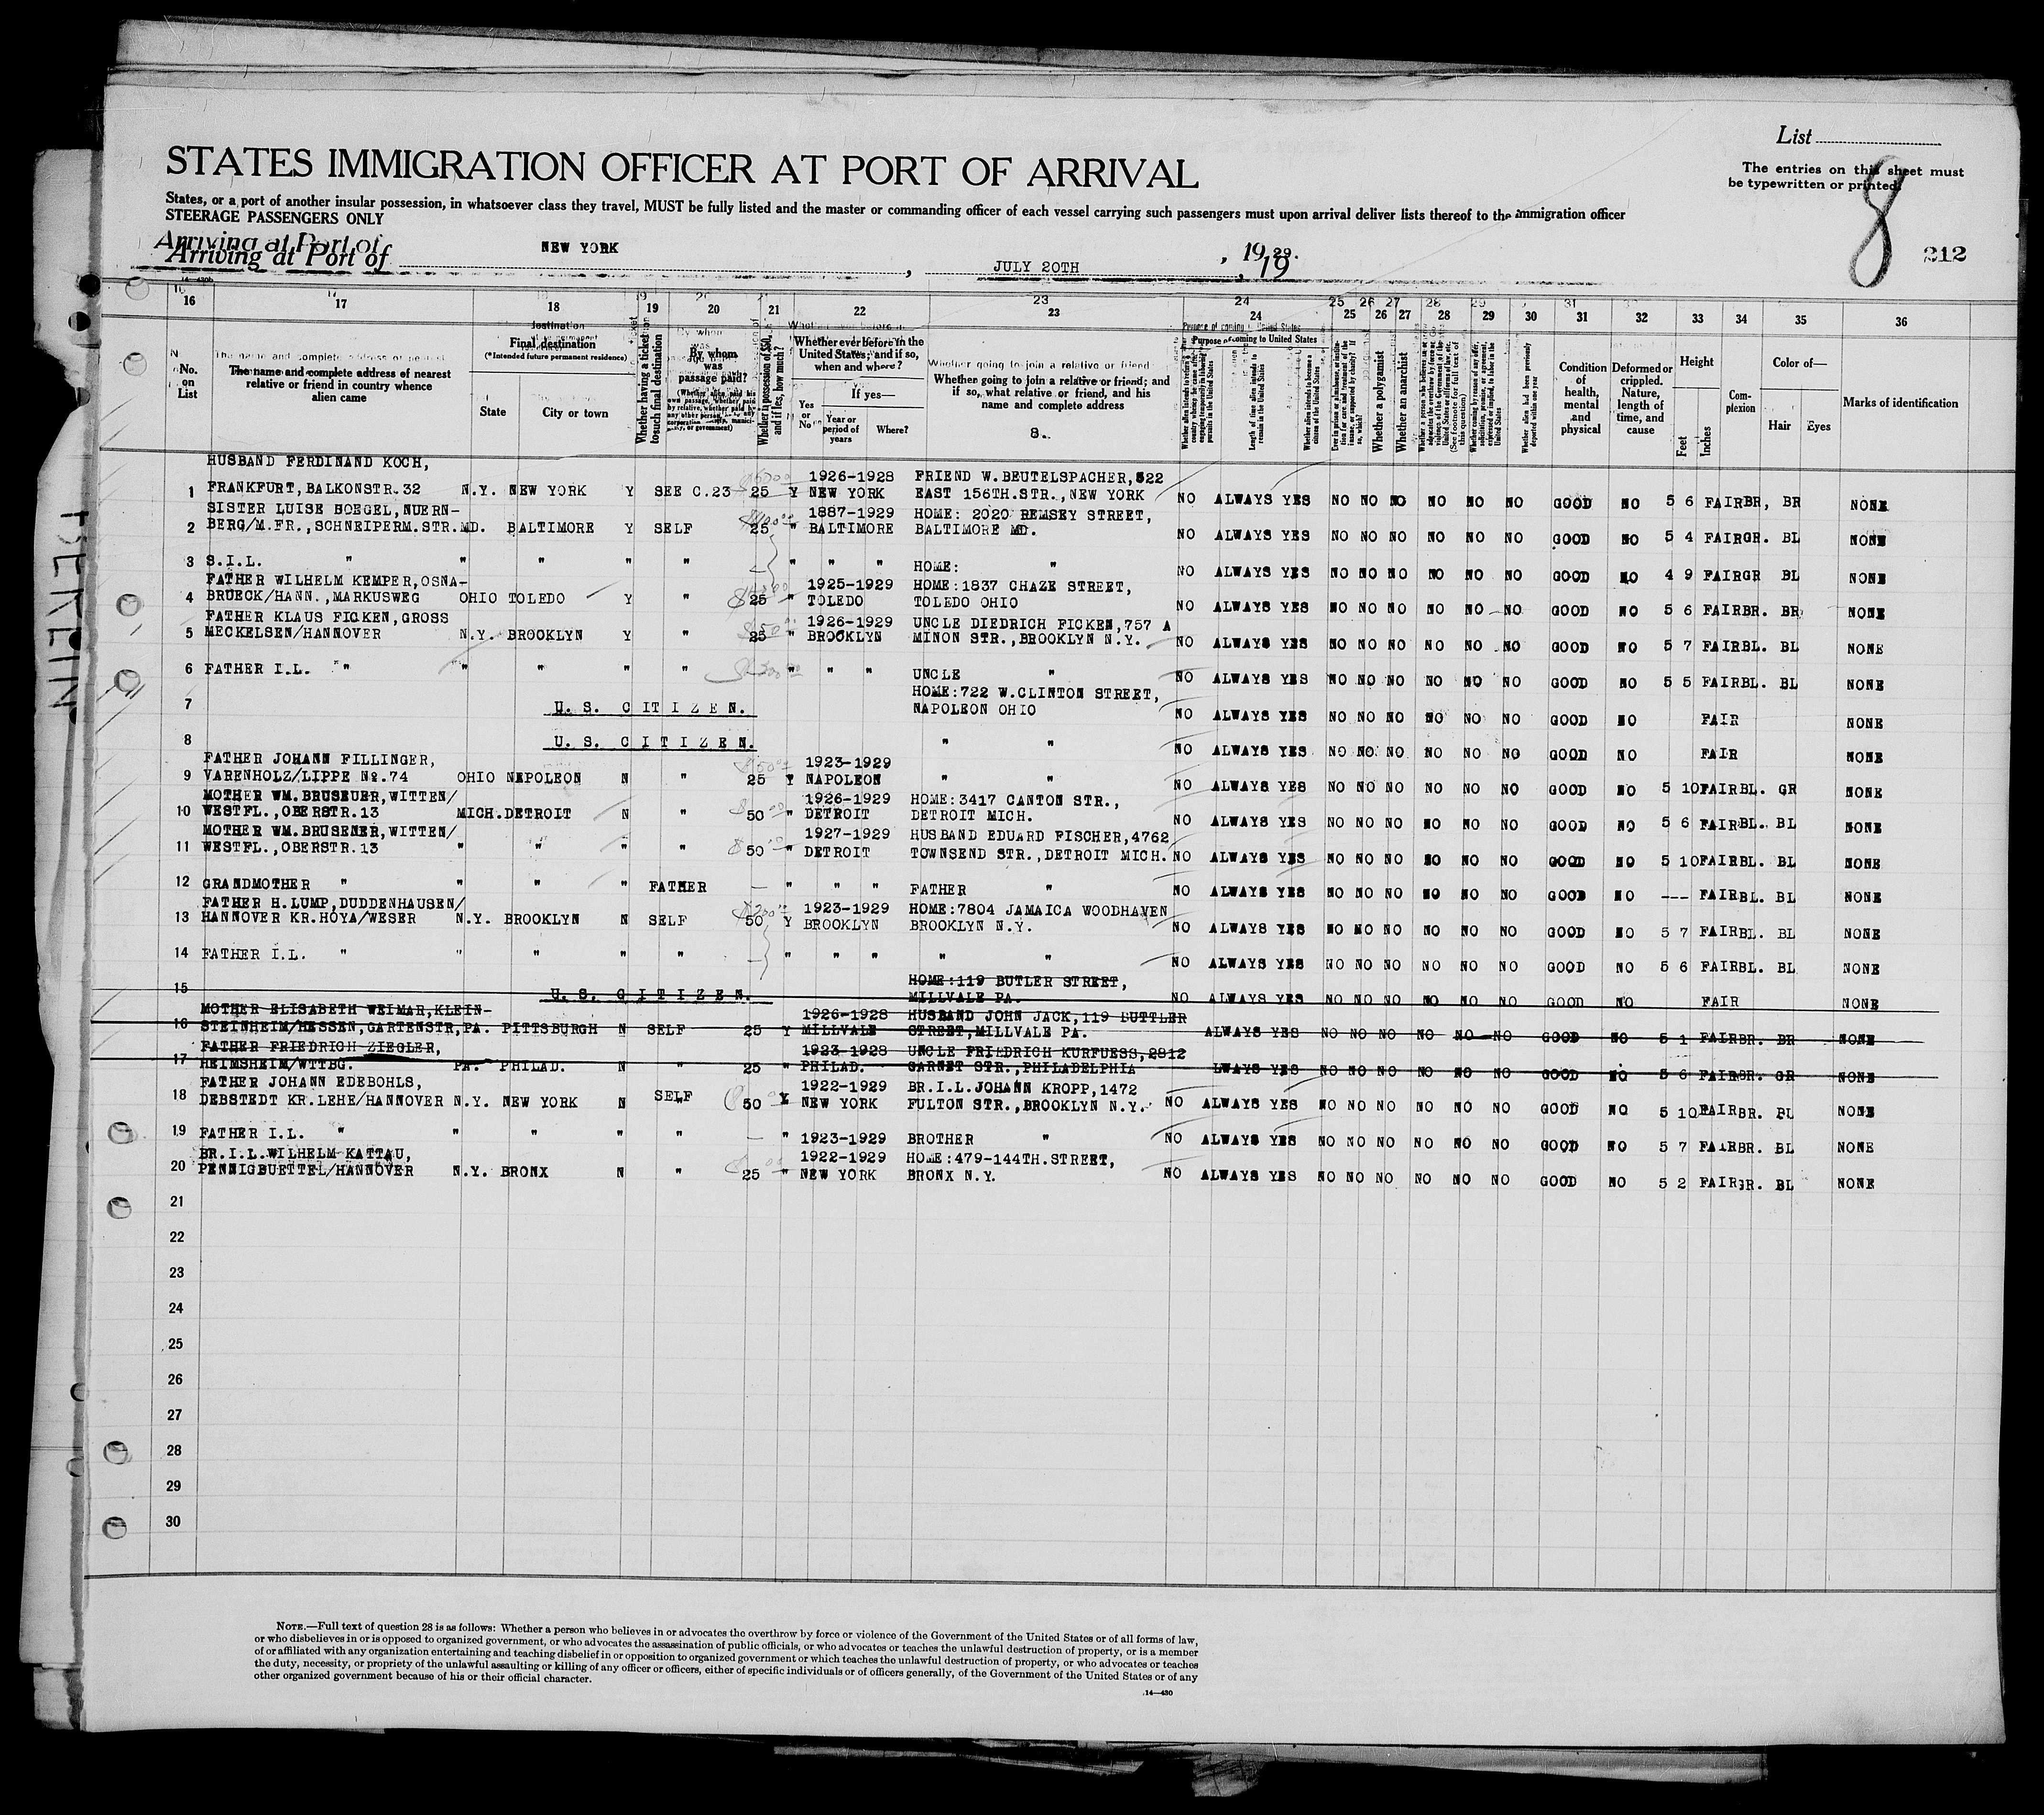 List
The entries on this sheet must
be typewritten or printed.
8
212
STATES IMMIGRATION OFFICER AT PORT OF ARRIVAL
States, or a port of another insular possession, in whatsoever class they travel, MUST be fully listed and the master or commanding officer of each vessel carrying such passengers must upon arrival deliver lists thereof to the immigration officer
STEERAGE PASSENGERS ONLY
Arriving at Port of NEW YORK , JULY 20TH , 19 29.
Arriving at Port of , 19
16 17 18 19 20 21 22 23 24 25 26 27 28 29 30 31 32 33 34 35 36
No. on List
The name and complete address of nearest relative or friend in country whence alien came
Final destination
(*Intended future permanent residence)
State City or town
Whether having a ticket to such final destination
By whom was passage paid?
Whether in possession of $50, and if less, how much?
Whether ever before in the United States; and if so, when and where?
Yes or No
If yes—
Year or period of years
Where?
Whether going to join a relative or friend; and if so, what relative or friend, and his name and complete address
Purpose of coming to United States
Length of time alien intends to remain in the United States
Whether a polygamist
Whether an anarchist
Condition of health, mental and physical
Deformed or crippled. Nature, length of time, and cause
Height
Feet Inches
Complexion
Color of—
Hair Eyes
Marks of identification
HUSBAND FERDINAND KOCH, 1926-1928 FRIEND W.BEUTELSPACHER,522
1 FRANKFURT,BALKONSTR.32 N.Y. NEW YORK Y SEE C.23 25 Y NEW YORK EAST 156TH.STR.,NEW YORK NO ALWAYS YES NO NO NO NO NO NO GOOD NO 5 6 FAIR BR, BR NONE
SISTER LUISE BOEGEL,NUERN- 1887-1929 HOME: 2020 REMSEY STREET,
2 BERG/M.FR.,SCHNEIPERM.STR. MD. BALTIMORE Y SELF 25 " BALTIMORE BALTIMORE MD. NO ALWAYS YES NO NO NO NO NO NO GOOD NO 5 4 FAIR GR. BL NONE
3 S.I.L. " " " " " — " " " HOME: " NO ALWAYS YES NO NO NO NO NO NO GOOD NO 4 9 FAIR GR BL NONE
FATHER WILHELM KEMPER,OSNA- 1925-1929 HOME:1837 CHAZE STREET,
4 BRUECK/HANN.,MARKUSWEG OHIO TOLEDO Y " 25 " TOLEDO TOLEDO OHIO NO ALWAYS YES NO NO NO NO NO NO GOOD NO 5 6 FAIR BR. BR NONE
FATHER KLAUS FICKEN,GROSS 1926-1929 UNCLE DIEDRICH FICKEN,757 A
5 MECKELSEN/HANNOVER N.Y. BROOKLYN Y " 25 " BROOKLYN MINON STR.,BROOKLYN N.Y. NO ALWAYS YES NO NO NO NO NO NO GOOD NO 5 7 FAIR BL. BL NONE
6 FATHER I.L. " " " " " " " " UNCLE " NO ALWAYS YES NO NO NO NO NO NO GOOD NO 5 5 FAIR BL. BL NONE
HOME:722 W.CLINTON STREET,
7 U. S. C I T I Z E N. NAPOLEON OHIO NO ALWAYS YES NO NO NO NO NO NO GOOD NO FAIR NONE
8 U. S. C I T I Z E N. " " NO ALWAYS YES NO NO NO NO NO NO GOOD NO FAIR NONE
FATHER JOHANN FILLINGER, 1923-1929
9 VARENHOLZ/LIPPE No.74 OHIO NEPOLEON N " 25 Y NAPOLEON " " NO ALWAYS YES NO NO NO NO NO NO GOOD NO 5 10 FAIR BL. GR NONE
MOTHER WM.BRUSEUER,WITTEN/ 1926-1929 HOME:3417 CANTON STR.,
10 WESTFL.,OBERSTR.13 MICH. DETROIT N " 50 " DETROIT DETROIT MICH. NO ALWAYS YES NO NO NO NO NO NO GOOD NO 5 6 FAIR BL. BL NONE
MOTHER WM.BRUSENER,WITTEN/ 1927-1929 HUSBAND EDUARD FISCHER,4762
11 WESTFL.,OBERSTR.13 " " " " 50 " DETROIT TOWNSEND STR.,DETROIT MICH. NO ALWAYS YES NO NO NO NO NO NO GOOD NO 5 10 FAIR BL. BL NONE
12 GRANDMOTHER " " " " FATHER — " " " FATHER " NO ALWAYS YES NO NO NO NO NO NO GOOD NO --- FAIR BL. BL NONE
FATHER H.LUMP,DUDDENHAUSEN/ 1923-1929 HOME:7804 JAMAICA WOODHAVEN
13 HANNOVER KR.HOYA/WESER N.Y. BROOKLYN N SELF 50 Y BROOKLYN BROOKLYN N.Y. NO ALWAYS YES NO NO NO NO NO NO GOOD NO 5 7 FAIR BL. BL NONE
14 FATHER I.L. " " " " " — " " " " " NO ALWAYS YES NO NO NO NO NO NO GOOD NO 5 6 FAIR BL. BL NONE
HOME:119 BUTLER STREET,
15 U. S. C I T I Z E N. MILLVALE PA. NO ALWAYS YES NO NO NO NO NO NO GOOD NO FAIR NONE
MOTHER ELISABETH WEIMAR,KLEIN- 1926-1928 HUSBAND JOHN JACK,119 BUTTLER
16 STEINHEIM/HESSEN,GARTENSTR, PA. PITTSBURGH N SELF 25 Y MILLVALE STREET,MILLVALE PA. ALWAYS YES NO NO NO NO NO NO GOOD NO 5 1 FAIR BR. BR NONE
FATHER FRIEDRICH ZIEGLER, 1923-1928 UNCLE FRIEDRICH KURFUESS,2812
17 HEIMSHEIM/WTTBG. PA. PHILAD. N " 25 " PHILAD. GARNET STR.,PHILADELPHIA LWAYS YES NO NO NO NO NO NO GOOD NO 5 6 FAIR BR. GR NONE
FATHER JOHANN EDEBOHLS, 1922-1929 BR.I.L.JOHANN KROPP,1472
18 DEBSTEDT KR.LEHE/HANNOVER N.Y. NEW YORK N SELF 50 Y NEW YORK FULTON STR.,BROOKLYN N.Y. NO ALWAYS YES NO NO NO NO NO NO GOOD NO 5 10 FAIR BR. BL NONE
19 FATHER I.L. " " " " " — " 1923-1929 BROTHER " NO ALWAYS YES NO NO NO NO NO NO GOOD NO 5 7 FAIR BR. BL NONE
BR.I.L.WILHELM KATTAU, 1922-1929 HOME:479-144TH.STREET,
20 PENNIGBUETTEL/HANNOVER N.Y. BRONX N " 25 " NEW YORK BRONX N.Y. NO ALWAYS YES NO NO NO NO NO NO GOOD NO 5 2 FAIR GR. BL NONE
21
22
23
24
25
26
27
28
29
30
NOTE.—Full text of question 28 is as follows: Whether a person who believes in or advocates the overthrow by force or violence of the Government of the United States or of all forms of law,
or who disbelieves in or is opposed to organized government, or who advocates the assassination of public officials, or who advocates or teaches the unlawful destruction of property, or is a member
of or affiliated with any organization entertaining and teaching disbelief in or opposition to organized government or which teaches the unlawful destruction of property, or who advocates or teaches
the duty, necessity, or propriety of the unlawful assaulting or killing of any officer or officers, either of specific individuals or of officers generally, of the Government of the United States or of any
other organized government because of his or their official character.
14—430
BERLIN